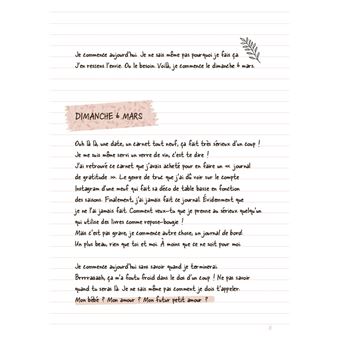 Je commence aujourd'hui. Je ne sais même pas pourquoi je fais ça
J'en ressens l'envie. Ou le besoin. Voilà, je commence le dimanche 6 mars.
DIMANCHE 6 MARS
Ouh là là, une date, un carnet tout neuf, ça fait très sérieux d'un coup !
Je me suis même servi un verre de vin, c'est te dire !
J'ai retrouvé ce carnet que j'avais acheté pour en faire un « journal
de gratitude ». Le genre de truc que j'ai dû voir sur le compte
Instagram d'une meuf qui fait sa déco de table basse en fonction
des saisons. Finalement, j'ai jamais fait ce journal. Évidemment que
je ne l'ai jamais fait. Comment veux-tu que je prenne au sérieux quelqu'un
qui utilise des livres comme repose-bougie !
Mais c'est pas grave, je commence autre chose, un journal de bord.
Un plus beau, rien que toi et moi. À moins que ce ne soit pour moi.
Je commence aujourd'hui sans savoir quand je terminerai.
Brrrraaaah, ça m'a foutu froid dans le dos d'un coup ! Ne pas savoir
quand tu seras là. Je ne sais même pas comment je dois t'appeler.
Mon bébé ? Mon amour ? Mon futur petit amour ?